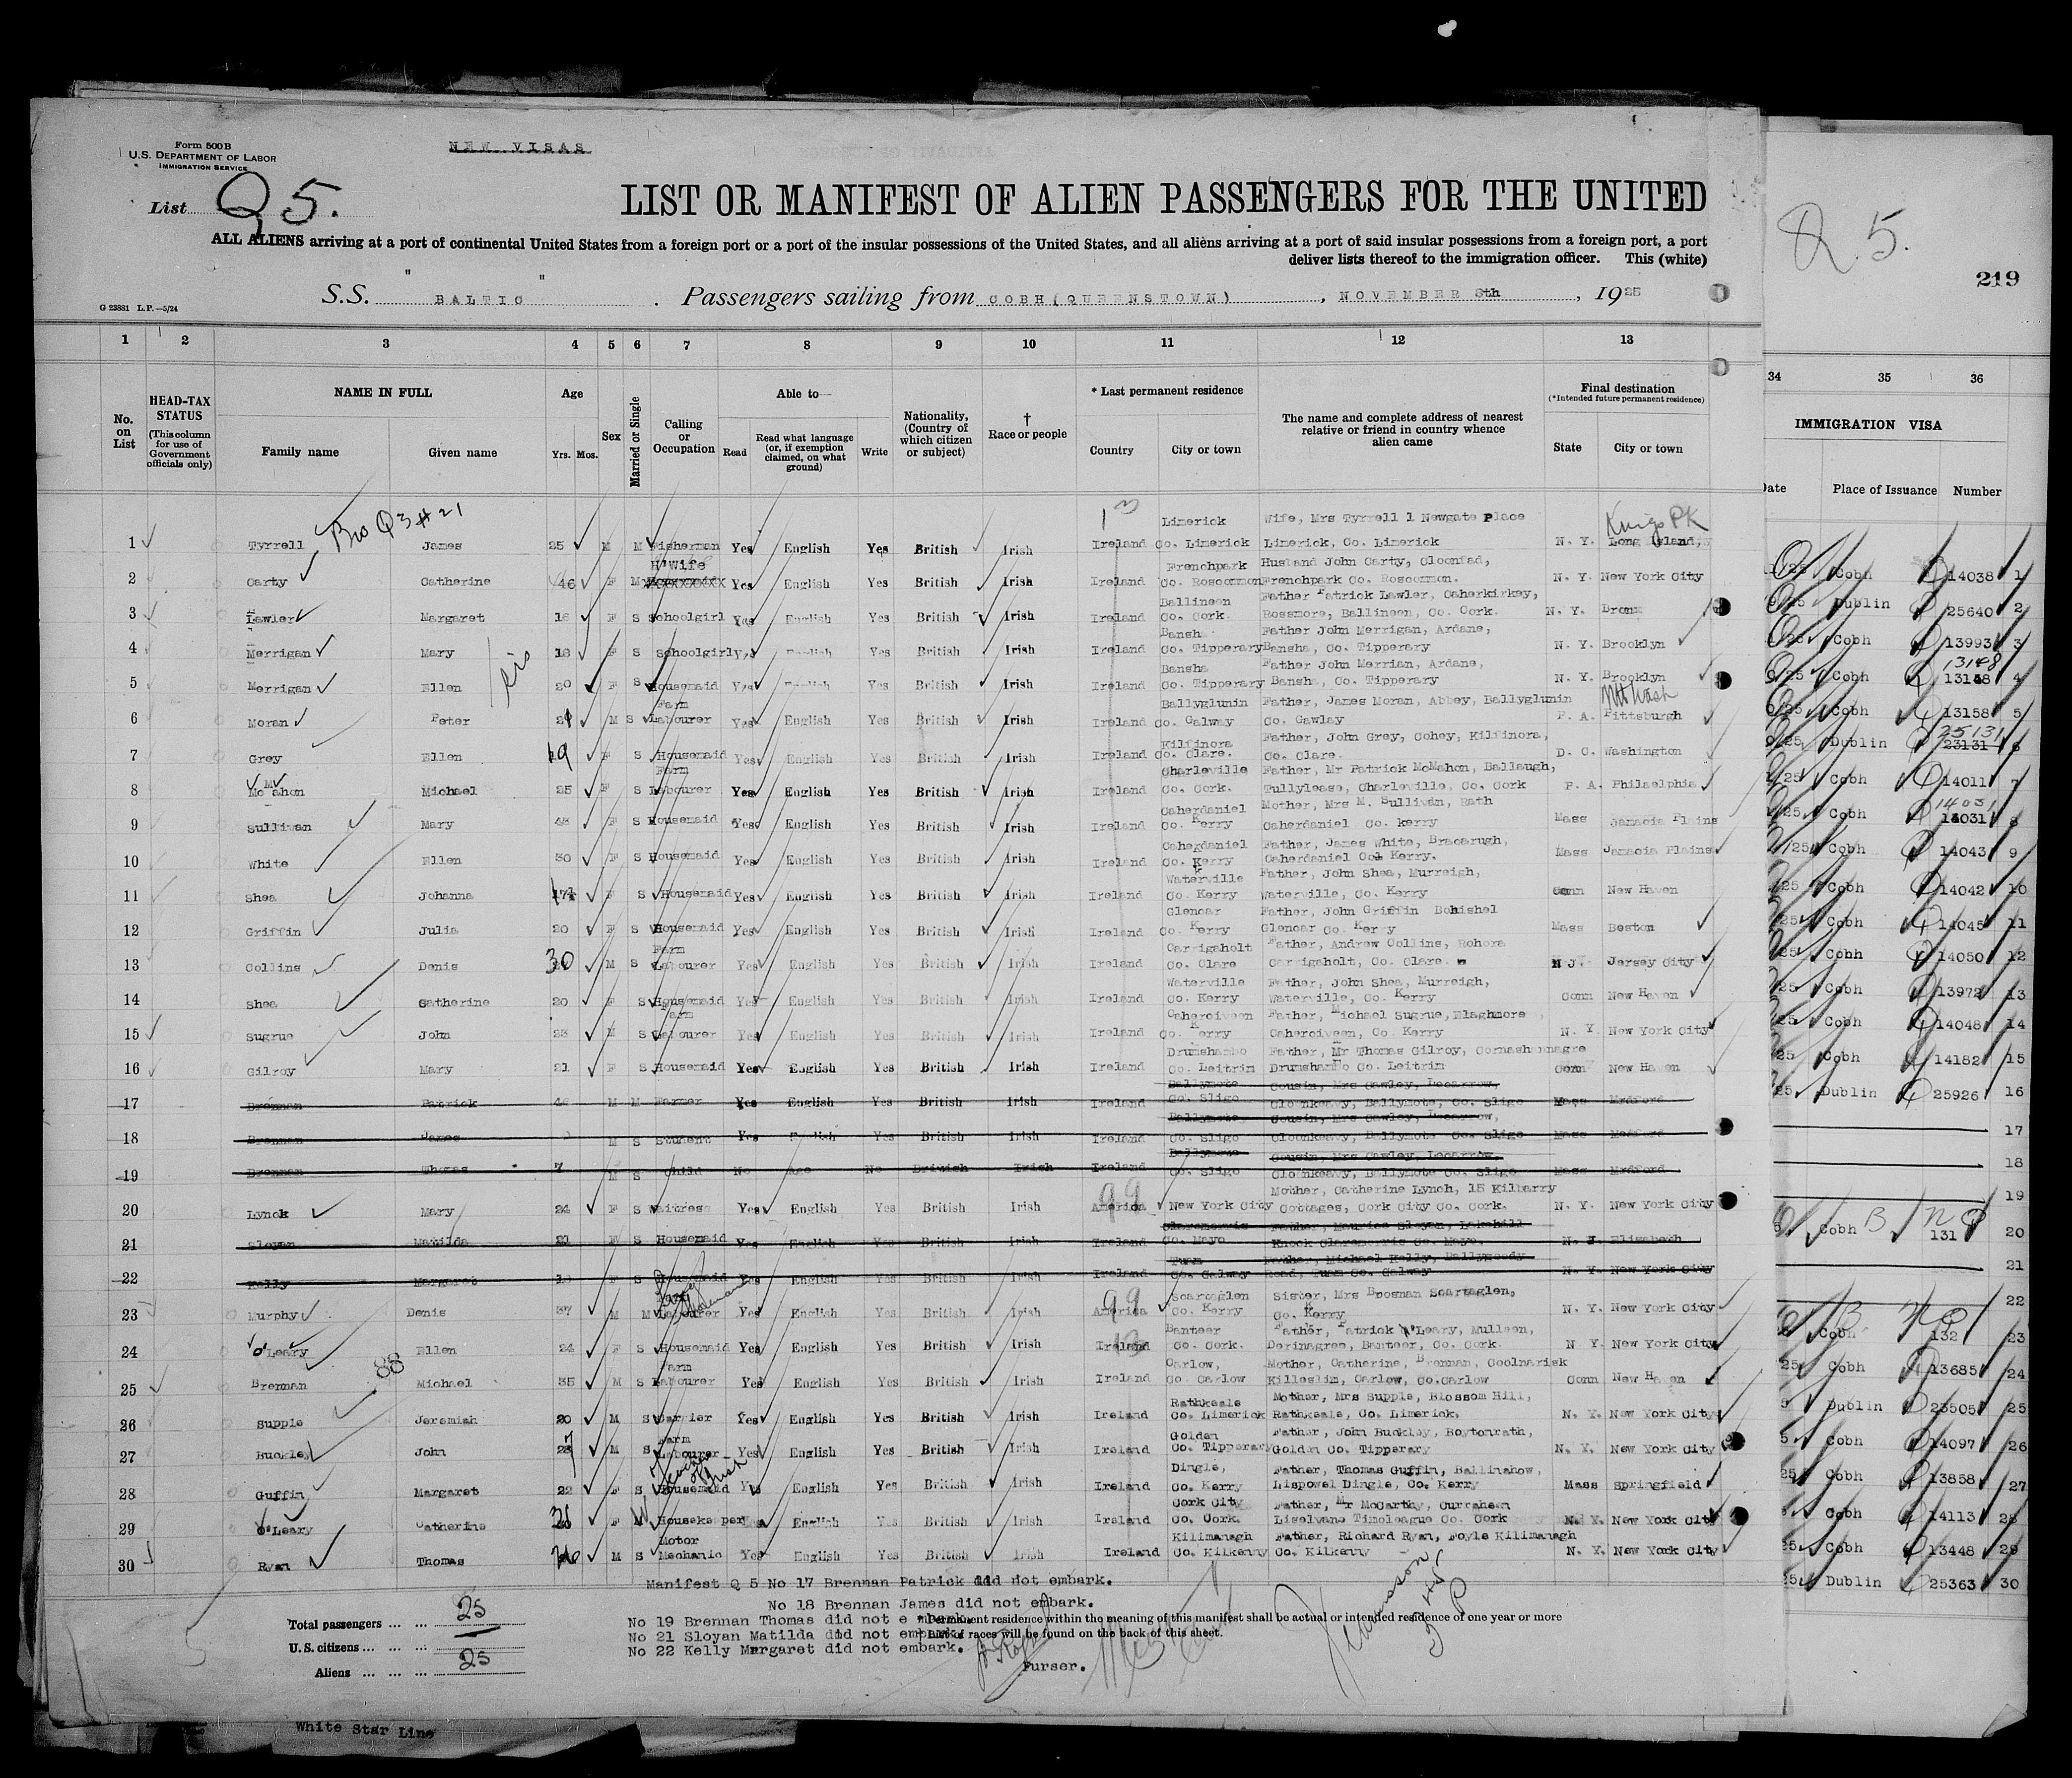 Form 500 B
U.S. DEPARTMENT OF LABOR
IMMIGRATION SERVICE
NEW VISAS
List Q 5.
LIST OR MANIFEST OF ALIEN PASSENGERS FOR THE UNITED
ALL ALIENS arriving at a port of continental United States from a foreign port or a port of the insular possessions of the United States, and all aliens arriving at a port of said insular possessions from a foreign port, a port
deliver lists thereof to the immigration officer. This (white)
Q. 5.
219
S.S. "BALTIC" . Passengers sailing from COBH(QUEENSTOWN) , NOVEMBER 8th , 1925
G 23881 L.P.—5/24
1 2 3 4 5 6 7 8 9 10 11 12 13 34 35 36
No. on List
HEAD-TAX STATUS (This column for use of Government officials only)
NAME IN FULL
Family name Given name
Age Yrs. Mos.
Sex
Married or Single
Calling or Occupation
Able to—
Read Read what language (or, if exemption claimed, on what ground) Write
Nationality, (Country of which citizen or subject)
† Race or people
* Last permanent residence
Country City or town
The name and complete address of nearest relative or friend in country whence alien came
Final destination (*Intended future permanent residence)
State City or town
IMMIGRATION VISA
Date Place of Issuance Number
Bro Q3 #21
Limerick Wife, Mrs Tyrrell 1 Newgate Place Kings PK
1 Tyrrell James 25 M M Fisherman Yes English Yes British Irish Ireland Co. Limerick Limerick, Co. Limerick N. Y. Long Island, Cobh 14038 1
H'Wife Frenchpark Husband John Carty, Cloonfad,
2 Carty Catherine 46 F M Yes English Yes British Irish Ireland Co. Roscommon Frenchpark Co. Roscommon. N. Y. New York City Dublin 25640 2
Ballineen Father Patrick Lawler, Caherkirkey,
3 Lawler Margaret 16 F S Schoolgirl Yes English Yes British Irish Ireland Co. Cork. Rossmore, Ballineen, Co. Cork. N. Y. Bronx Cobh 13993 3
Bansha Father John Merrigan, Ardane,
4 Merrigan Mary 18 F S Schoolgirl Yes English British Irish Ireland Co. Tipperary Bansha, Co. Tipperary N. Y. Brooklyn Cobh 13148 4
sis Bansha Father John Merrian, Ardane,
5 Merrigan Ellen 20 F S Housemaid Yes English British Irish Ireland Co. Tipperary Bansha, Co. Tipperary N. Y. Brooklyn Cobh 13158 5
Farm Ballyglunin Father, James Moran, Abbey, Ballyglunin
6 Moran Peter M S Labourer Yes English Yes British Irish Ireland Co. Galway Co. Gawlay P. A. Pittsburgh Dublin 25131 6
Kilfinora Father, John Grey, Cohey, Kilfinora,
7 Grey Ellen 19 F S Housemaid Yes English Yes British Irish Ireland Co. Clare. Co. Clare. D. C. Washington Cobh 14011 7
Farm Charleville Father, Mr Patrick McMahon, Ballaugh,
8 McMahon Michael 25 F S Labourer Yes English Yes British Irish Ireland Co. Cork. Tullylease, Charleville, Co. Cork P. A. Philaelphia Cobh 14031 8
Caherdaniel Mother, Mrs M. Sullivan, Rath
9 Sullivan Mary F S Housemaid Yes English Yes British Irish Ireland Co. Kerry Caherdaniel Co. kerry Mass Jamacia Plains Cobh 14043 9
Cahegdaniel Father, James White, Bracarugh,
10 White Ellen 30 F S Housemaid Yes English Yes British Irish Ireland Co. Kerry Caherdaniel Co. Kerry. Mass Jamacia Plains Cobh 14042 10
Waterville Father, John Shea, Murreigh,
11 Shea Johanna 17 F S Housemaid Yes English Yes British Irish Ireland Co. Kerry Waterville, Co. Kerry Conn New Haven Cobh 14045 11
Glencar Father, John Griffin Bohishel
12 Griffin Julia 20 F S Housemaid Yes English Yes British Irish Ireland Co. Kerry Glencar Co. Kerry Mass Boston Cobh 14050 12
Farm Carrigaholt Father, Andrew Collins, Rohora
13 Collins Denis 30 M S Labourer Yes English Yes British Irish Ireland Co. Clare Carrigaholt, Co. Clare. N.J. Jersey City Cobh 13972 13
Waterville Father, John Shea, Murreigh,
14 Shea Catherine 20 F S Housemaid Yes English Yes British Irish Ireland Co. Kerry Waterville, Co. Kerry Conn New Haven Cobh 14048 14
Farm Caherciveen Father, Michael Sugrue, Elaghmore
15 Sugrue John 23 M S Labourer Yes English Yes British Irish Ireland Co. Kerry Caherciveen, Co. Kerry N. Y. New York City Cobh 14182 15
Drumshambo Father, Mr Thomas Gilroy, Cornashamnagre
16 Gilroy Mary 21 F S Housemaid Yes English Yes British Irish Ireland Co. Leitrim Drumshambo Co. Leitrim Conn New Haven Dublin 25926 16
Ballymote Cousin, Mrs Cawley, Locarrow,
17 Brennan Patrick M M Farmer Yes English Yes British Irish Ireland Co. Sligo Cloonkeavy, Ballymote, Co. Sligo Mass Mrdford 17
Ballymote Cousin, Mrs Cawley, Locarrow,
18 Brennan James M S Student Yes English Yes British Irish Ireland Co. Sligo Cloonkeavy, Ballymote Co. Sligo Mass Medford 18
Ballymote Cousin, Mrs Cawley, Locarrow.
19 Brennan Thomas 7 M S Child No Age No British Irish Ireland Co. Sligo Cloonkeavy, Ballymote Co. Sligo Mass Mrdford 19
99 Mother, Catherine Lynch, 15 Kilbarry
20 Lynch Mary 24 F S Waitress Yes English Yes British Irish America New York City Cottages, Cork City Co. Cork. N. Y. New York City Cobh 131 20
Claremorris Father, Maurice Sloyan, Lakehill
21 Sloyan Matilda 21 F S Housemaid Yes English Yes British Irish Ireland Co. Mayo Knock Claremorris Co. Mayo. N. J. Elizabeth 21
Tuam Father, Michael Kelly, Ballygeddy
22 Kelly Margaret F S Housemaid Yes English Yes British Irish Ireland Co. Galway Road, Tuam Co. Galway N. Y. New York City 22
99 Scartaglen Sister, Mrs Brosnan Scartaglen,
23 Murphy Denis 37 M M Labourer Yes English Yes British Irish America Co. Kerry Co. Kerry N. Y. New York City Cobh 132 23
Banteer Father, Patrick O'Leary, Mulleen,
24 O'Leary Ellen 24 F S Housemaid Yes English Yes British Irish Ireland Co. Cork. Derinagree, Banteer, Co. Cork. N Y. New York City Cobh 13685 24
88 Farm Carlow, Mother, Catherine, Brennan, Coolnariek
25 Brennan Michael 35 M S Labourer Yes English Yes British Irish Ireland Co. Carlow Killeslim, Carlow, Co.Carlow Conn New Haven Dublin 23505 25
Rathkeale Mother, Mrs Supple, Blossom Hill,
26 Supple Jeremiah 20 M S Yes English Yes British Irish Ireland Co. Limerick Rathkeale, Co. Limerick. N. Y. New York City Cobh 14097 26
Farm Golden Father, John Buckley, Boytonrath,
27 Buckley John M S Labourer Yes English Yes British Irish Ireland Co. Tipperary Golden Co. Tipperary N. Y. New York City Cobh 13858 27
Dingle, Father, Thomas Guffin, Ballinahow,
28 Guffin Margaret 22 F S Housemaid Yes English Yes British Irish Ireland Co. Kerry Lispowel Dingle, Co. Kerry Mass Springfield Cobh 14113 28
Cork City Father, Mr McCarthy, Curraheen
29 O'Leary Catherine F W Housekeeper Yes English Yes British Irish Ireland Co. Cork. Liselvane Timoleague Co. Cork N. Y. New York City Cobh 13448 29
Motor Kilimanagh Father, Richard Ryan, Foyle Kilimanagh
30 Ryan Thomas 26 M S Mechanic Yes English Yes British Irish Ireland Co. Kilkenny Co. Kilkenny N. Y. New York City Dublin 25363 30
Manifest Q 5 No 17 Brennan Patrick did not embark.
No 18 Brennan James did not embark.
No 19 Brennan Thomas did not embark.
No 21 Sloyan Matilda did not embark.
No 22 Kelly Margaret did not embark.
Purser.
* Permanent residence within the meaning of this manifest shall be actual or intended residence of one year or more
† List of races will be found on the back of this sheet.
Total passengers ... ... 25
U.S. citizens ... ... ...
Aliens ... ... ... 25
White Star Line